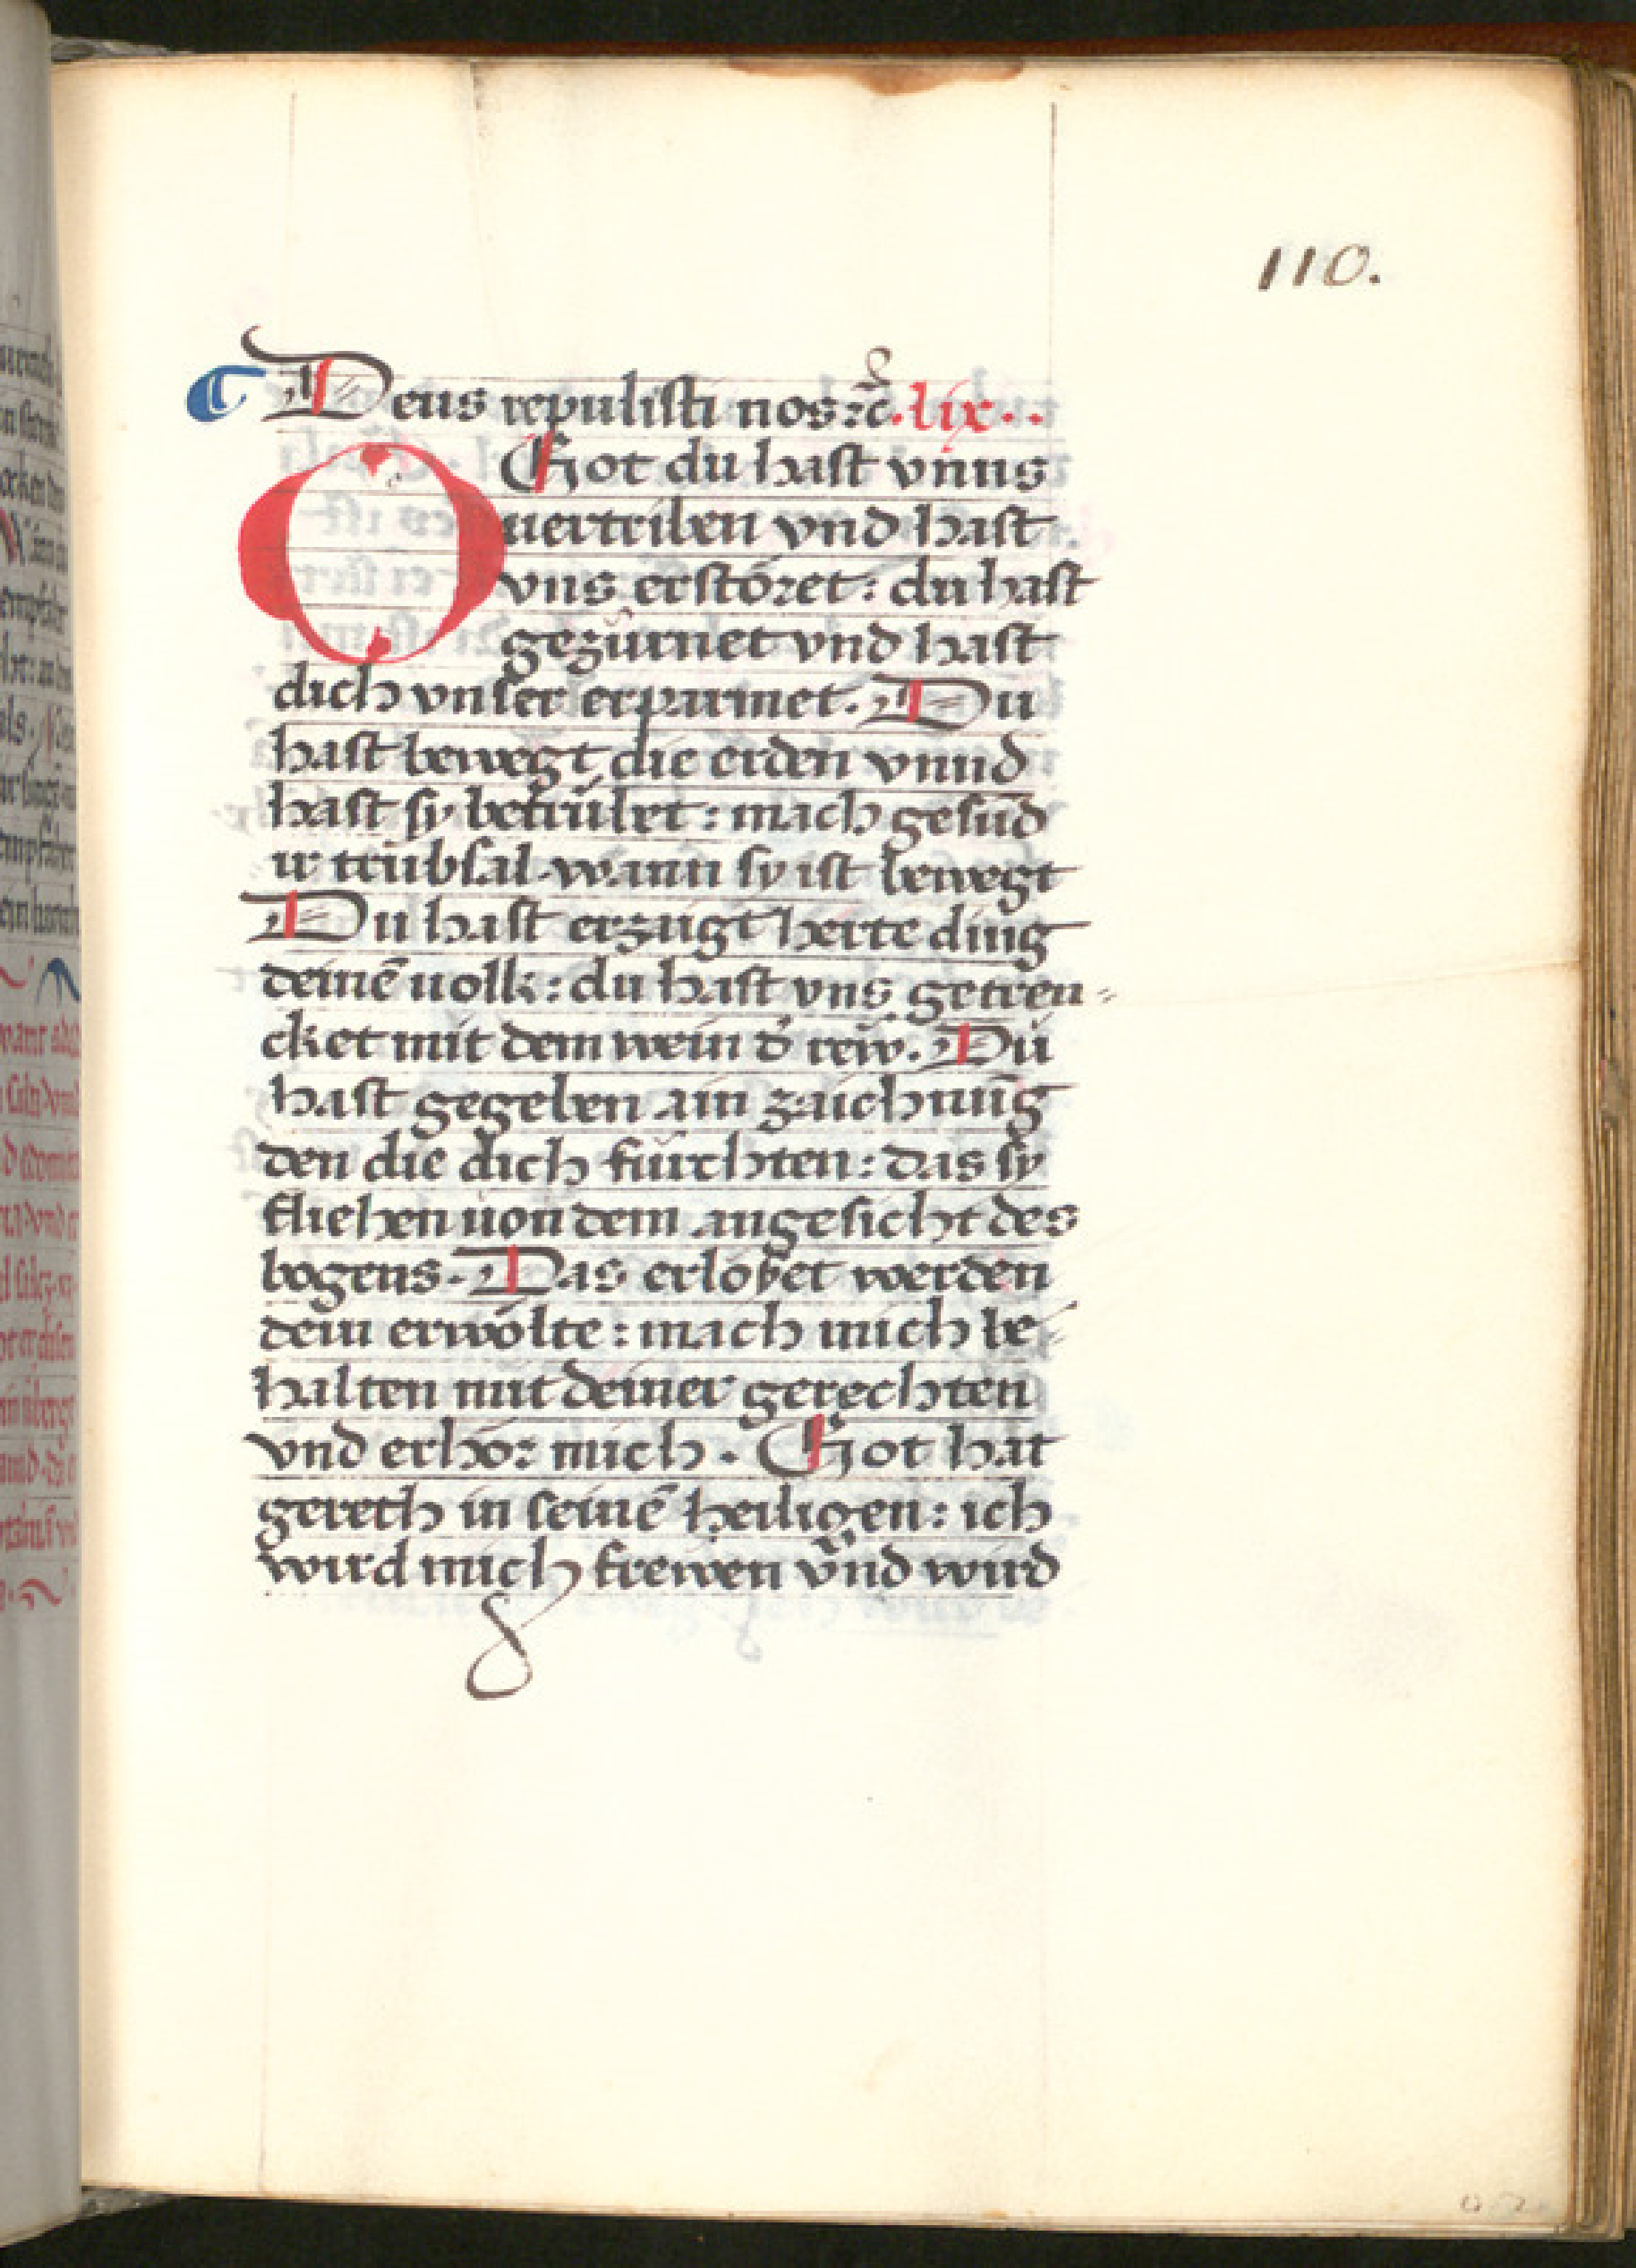 110.
Deus repulisti nos ⁊c̄. lix..
O Got du hast vnns
uertriben vnd hast
vns erstöret: du hast
gezu̇rnet vnd hast
dich vnser erparmet. Du
hast bewegt die erden vnnd
hast sy betrübet: mach gesūd
ir trübsal wann sy ist bewegt
Du hast erzaigt herte ding
deinē uolk: du hast vns getren=
cket mit dem wein d̾ rew. Du
hast gegeben ain zaichnūg
den die dich fürchten: das sy
fliehen uon dem angesicht des
bogens. Das erlöset werden
dein erwölte: mach mich be=
halten mit deiner gerechten
vnd erhör mich. Got hat
gereth in seinē heiligen: ich
wird mich frewen vnd wird